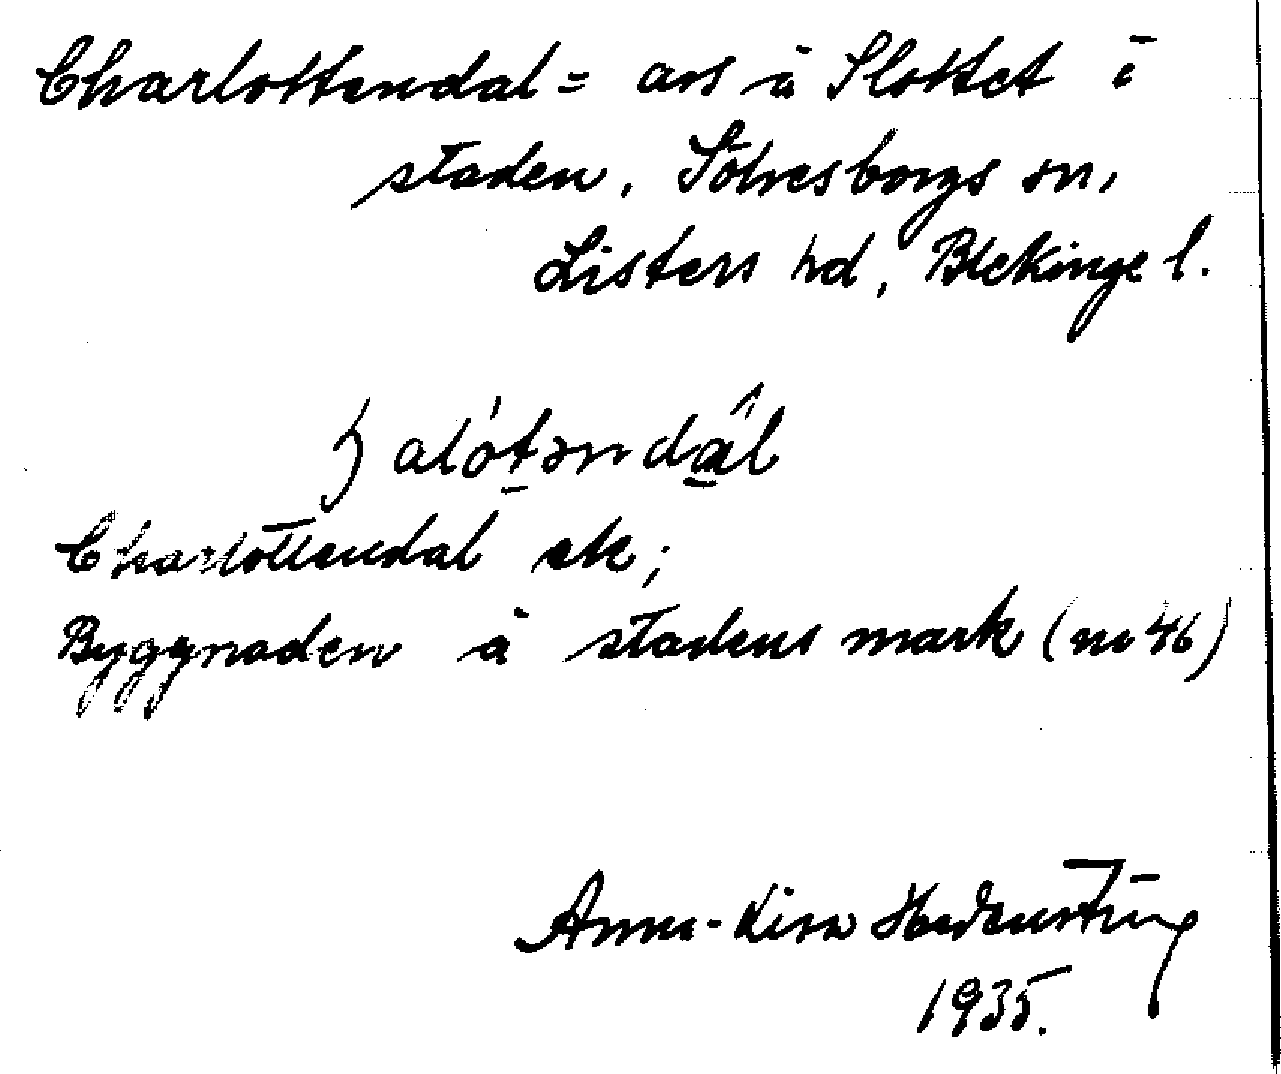 Charlottendal = avs å Slottet i
staden, Sölvesborgs sn,
Listers hd, Blekinge l.
ʃalót̠əndâ̠l
Charlottendal ek;
Byggnaden å stadens mark (nr 46)
Anna-Lisa
1935.